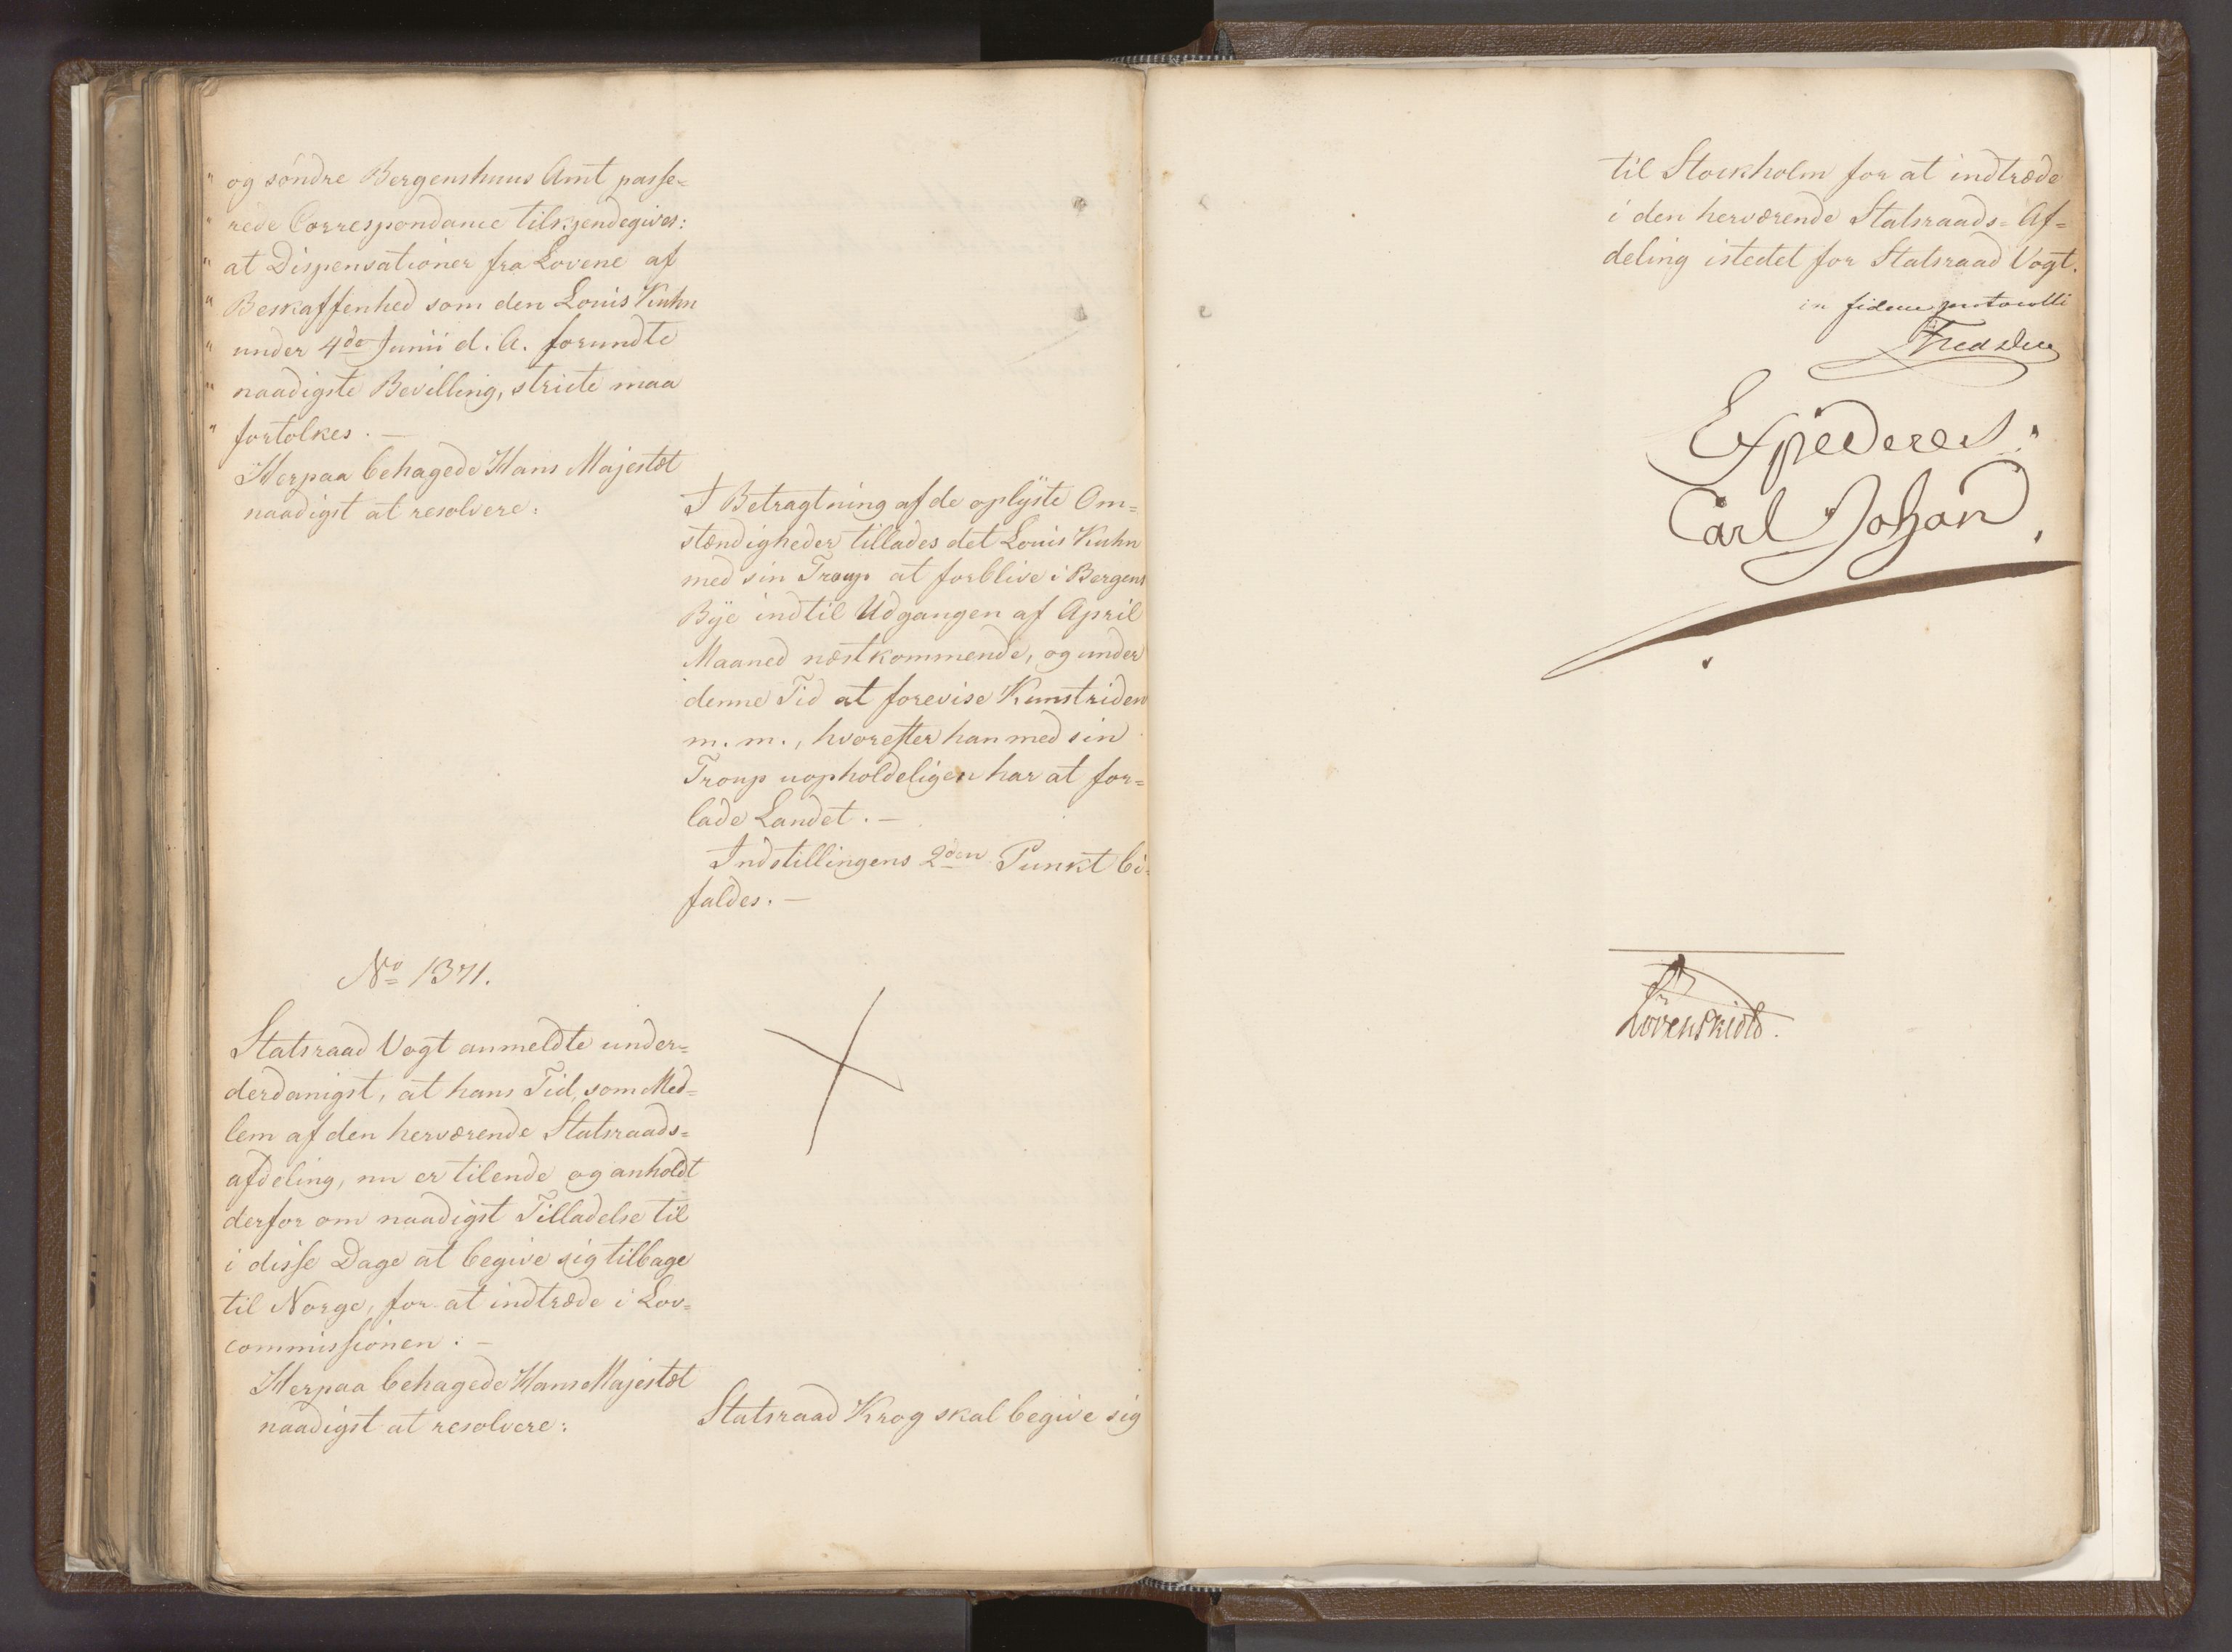 " og söndre Bergenhuus Amt passe=
" rede Correspondance tilkjendegives:
" at Dispensationer fra Lovene af
" Beskaffenhed som den Louis Kuhn
" under 4de Junii d. A. forundte
" naadigste Bevilling, stricte maa
" fortolkes. —
Herpaa behagede Hans Majestæt
naadigst at resolvere:
I Betragtning af de oplÿste Om=
stændigheder tillades det Louis Kuhn
med sin Troup at forblive i Bergens
Bÿe indtil Udgangen af April
Maaned næstkommende, og under
denne Tid at forevise Kunstriden
m. m., hvorefter han med sin
Troup uopholdeligen har at for=
lade Landet. —
Indstillingens 2den Punkt bi=
faldes. —
No 1371.
Statsraad Vogt anmeldte under=
derdanigst, at hans Tid, som Med=
lem af den herværende Statsraads=
afdeling, nu er tilende og anholdt
derfor om naadigst Tilladelse til
i disse Dage at begive sig tilbage
til Norge, for at indtræde i Lov=
commissionen. —
Herpaa behagede Hans Majestæt
naadigst at resolvere:
Statsraad Krog skal begive sig
til Stockholm for at indtræde
i den herværende Statsraads=Af=
deling istedet for Statsraad Vogt.
in fidem protocolli
Expederes:
Carl Johan.
Lövenskiold.